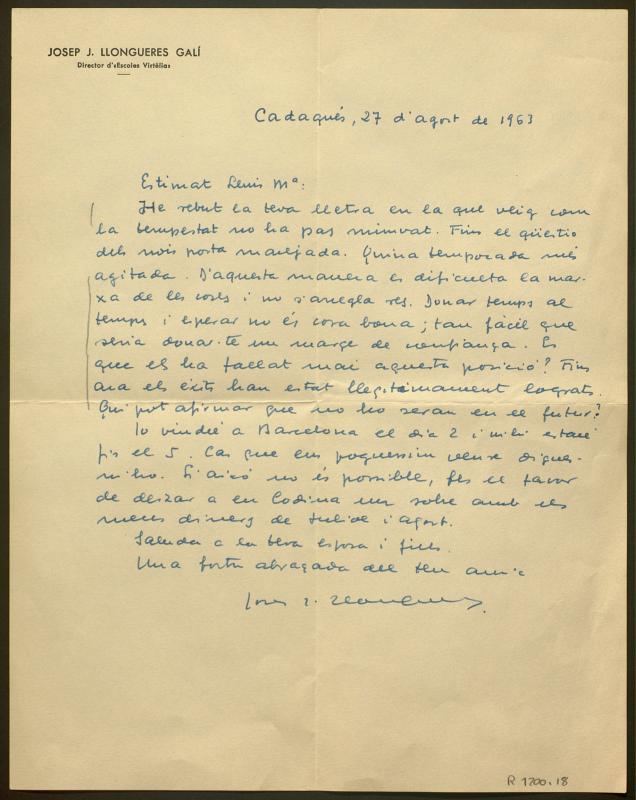 JOSEP J. LLONGUERES GALÍ
Director d'«Escoles Virtèlia»
Cadaqués, 27 d'agost de 1963
Estimat Lluis Mª:
He rebut la teva lletra en la que veig com
la tempestat no ha pas minvat. Fins el qüestio
dels nois porta marejada. Quina temporada més
agitada. D'aquesta manera es dificulta la mar-
xa de les coses i no s'arregla res. Donar temps al
temps i esperar no és cosa bona; tan fàcil que
seria donar-te un marge de confiança. Es
que els ha fallat mai aquesta posició? Fins
ara els èxits han estat llegítimament lograts.
Qui pot afirmar que no ho seran en el futur?
Io vindré a Barcelona el dia 2 i m'hi estaré
fis el 5. Cas que ens poguessim veure digues-
m'ho. Si això no és possible, fes el favor
de deixar a en Codina un sobre amb els
meus diners de Juliol i agost.
Saluda a la teva esposa i fills.
Una forta abraçada del teu amic
Josep J. Llongueres
R 1700.18